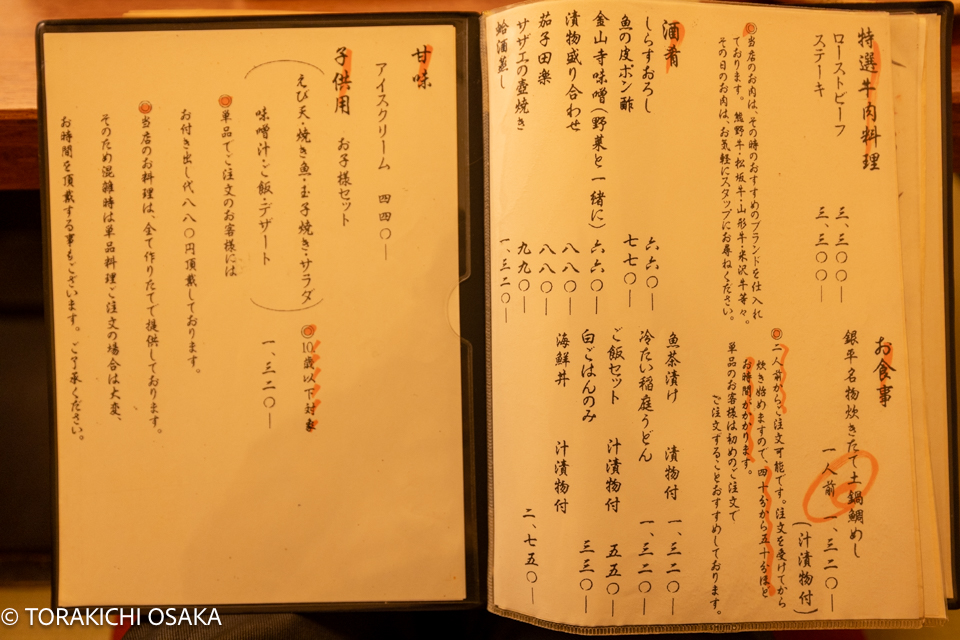 特選牛肉料理
ローストビーフ 三、三〇〇―
ステーキ 三、三〇〇―
◎当店のお肉は、その時のおすすめのブランドを仕入れ
ております。熊野牛・松坂牛・山形牛・米沢牛等々。
その日のお肉は、お気軽にスタッフにお尋ねください。
酒肴
しらすおろし 六六〇―
魚の皮ポン酢 七七〇―
金山寺味噌(野菜と一緒に) 六六〇―
漬物盛り合わせ 八八〇―
茄子田楽 八八〇―
サザエの壺焼き 九九〇―
蛤酒蒸し 一、三二〇―
お食事
銀平名物炊きたて土鍋鯛めし
一人前 一、三二〇―
(汁漬物付)
◎二人前からご注文可能です。注文を受けてから
炊き始めますので、四十分から五十分ほど
お時間がかかります。
単品のお客様は初めのご注文で
ご注文することをおすすめしております。
魚茶漬け 漬物付 一、三二〇―
冷たい稲庭うどん 一、三二〇―
ご飯セット 汁漬物付 五五〇―
白ごはんのみ 三三〇―
海鮮丼 汁漬物付 二、七五〇―
甘味
アイスクリーム 四四〇―
子供用 お子様セット
(えび天・焼き魚・玉子焼き・サラダ
味噌汁・ご飯・デザート)
◎10歳以下対象
一、三二〇―
◎単品でご注文のお客様には
お付き出し代八八〇円頂戴しております。
◎当店のお料理は、全て作りたてで提供しております。
そのため混雑時は単品料理ご注文の場合は大変、
お時間を頂戴する事もございます。ご了承ください。
© TORAKICHI OSAKA